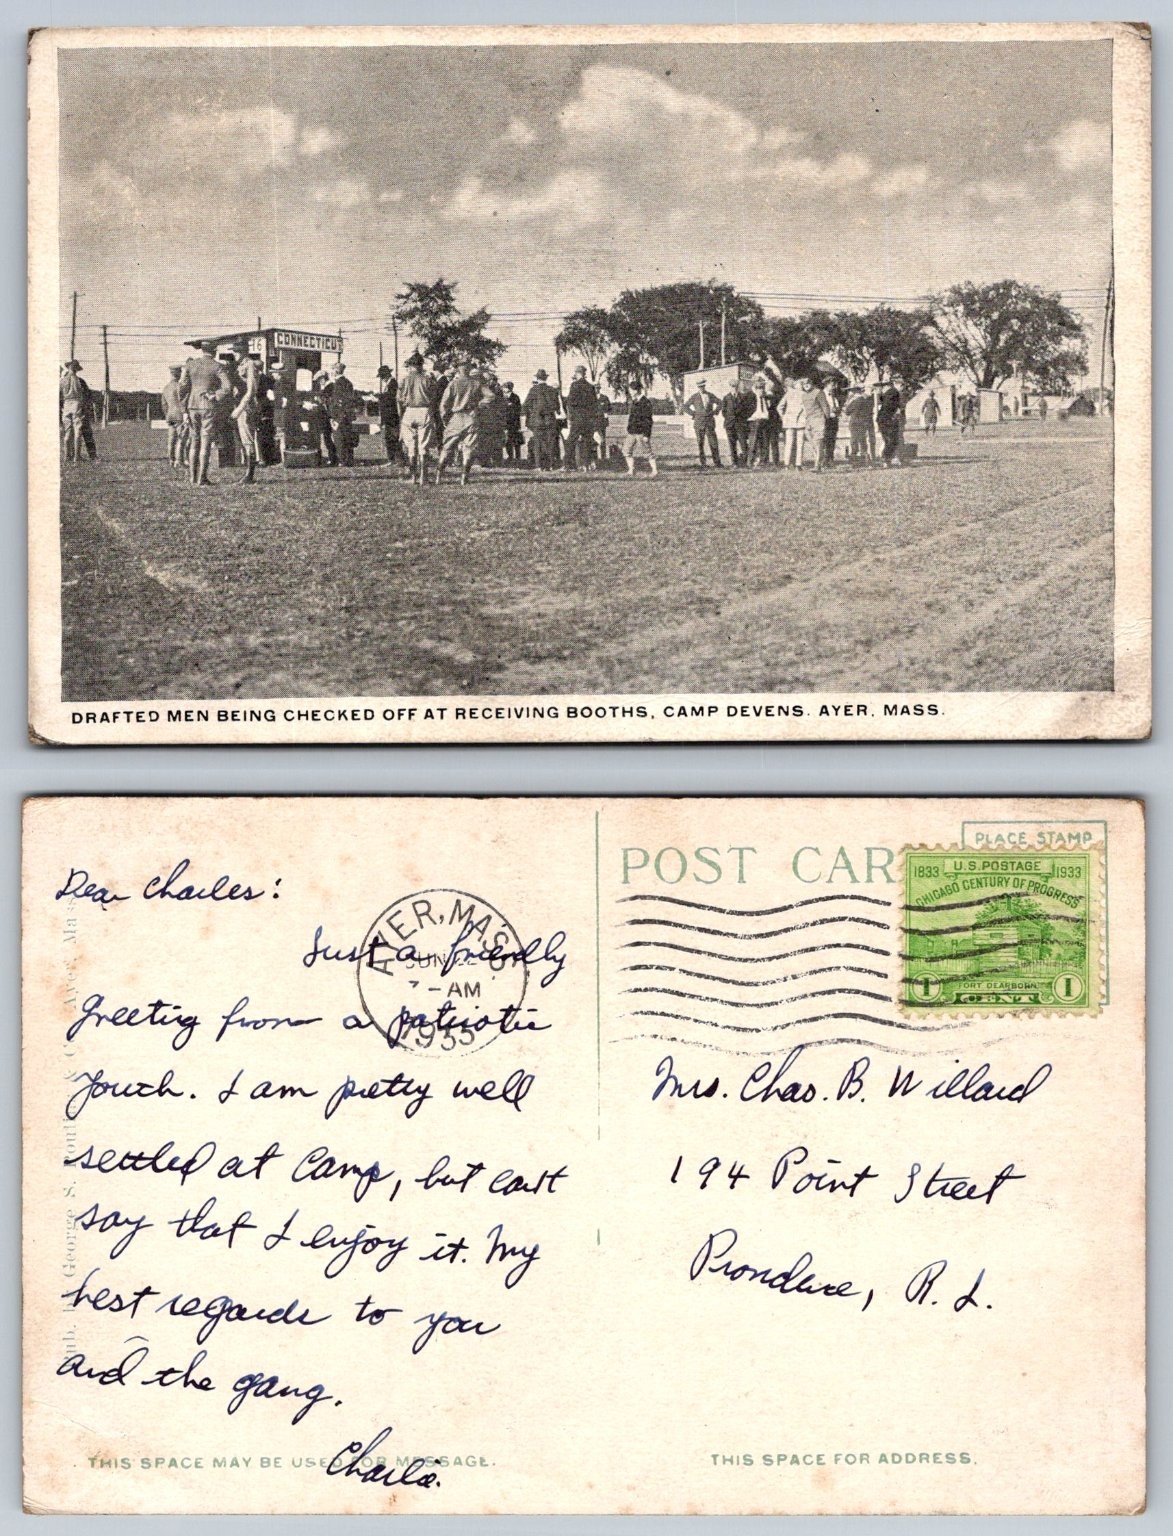 16
CONNECTICUT
DRAFTED MEN BEING CHECKED OFF AT RECEIVING BOOTHS, CAMP DEVENS. AYER, MASS.
Dear Charles:
Just a friendly
Greeting from a patriotic
youth. I am pretty well
settled at Camp, but can't
say that I enjoy it. My
best regards to you
and the gang.
Charlie.
THIS SPACE MAY BE USED FOR MESSAGE.
AYER, MASS.
JUN
AM
POST CAR
PLACE STAMP
1833 U.S. POSTAGE 1933
CHICAGO CENTURY OF PROGRESS
FORT DEARBORN
1 CENT 1
Mrs. Chas. B. Willard
194 Point Street
Providence, R. I.
THIS SPACE FOR ADDRESS.
George S.
Ayer, Mass